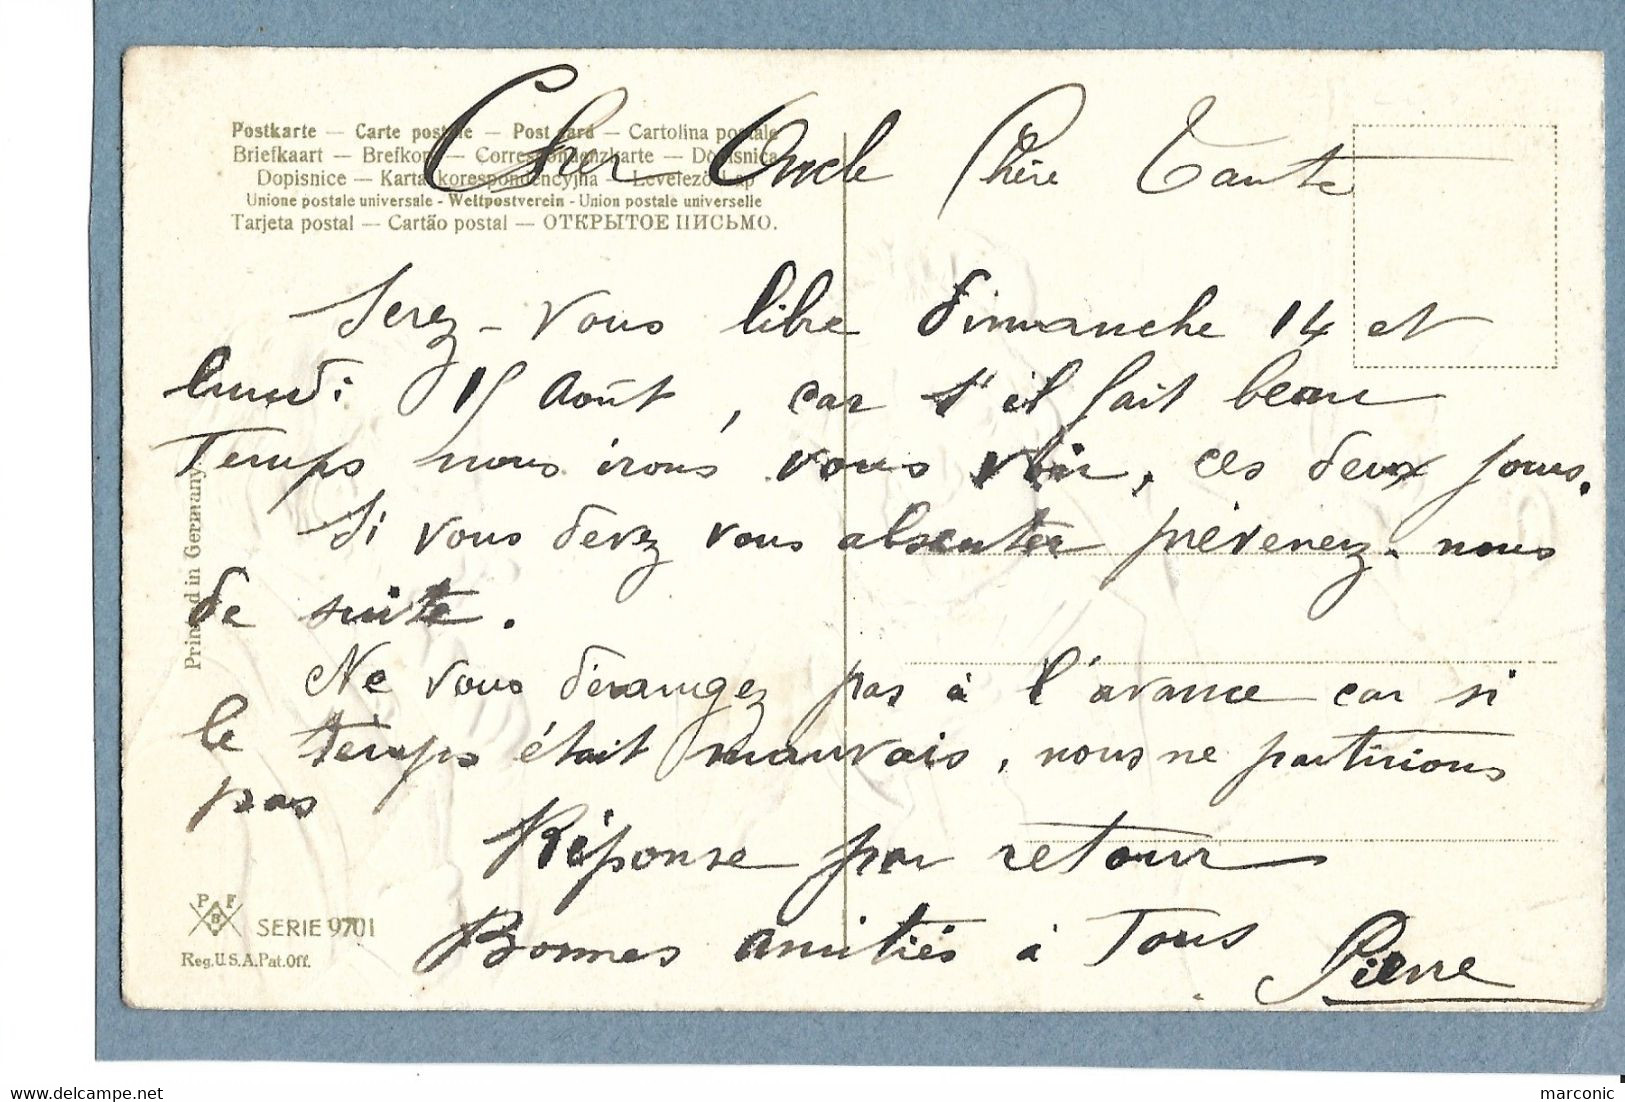 Postkarte — Carte postale — Post card — Cartolina postale
Briefkaart — Brefkort — Correspondenzkarte — Dopisnica
Dopisnice — Karta korespondencyjna — Levelező-Lap
Unione postale universale - Weltpostverein - Union postale universelle
Tarjeta postal — Cartão postal — ОТКРЫТОЕ ПИСЬМО.
Cher Oncle Chère Tante
Serez-vous libre dimanche 14 et
lundi 15 Août, car s'il fait beau
Temps nous irons vous voir, ces deux jours.
Si vous devez vous absenter prévenez-nous
de suite.
Ne vous dérangez pas à l'avance car si
le temps était mauvais, nous ne partirions
pas
Réponse par retour
Bonnes amitiés à Tous
Pierre
Printed in Germany
P B F
SERIE 9701
Reg. U.S.A. Pat. Off.
delcampe.net
marconic